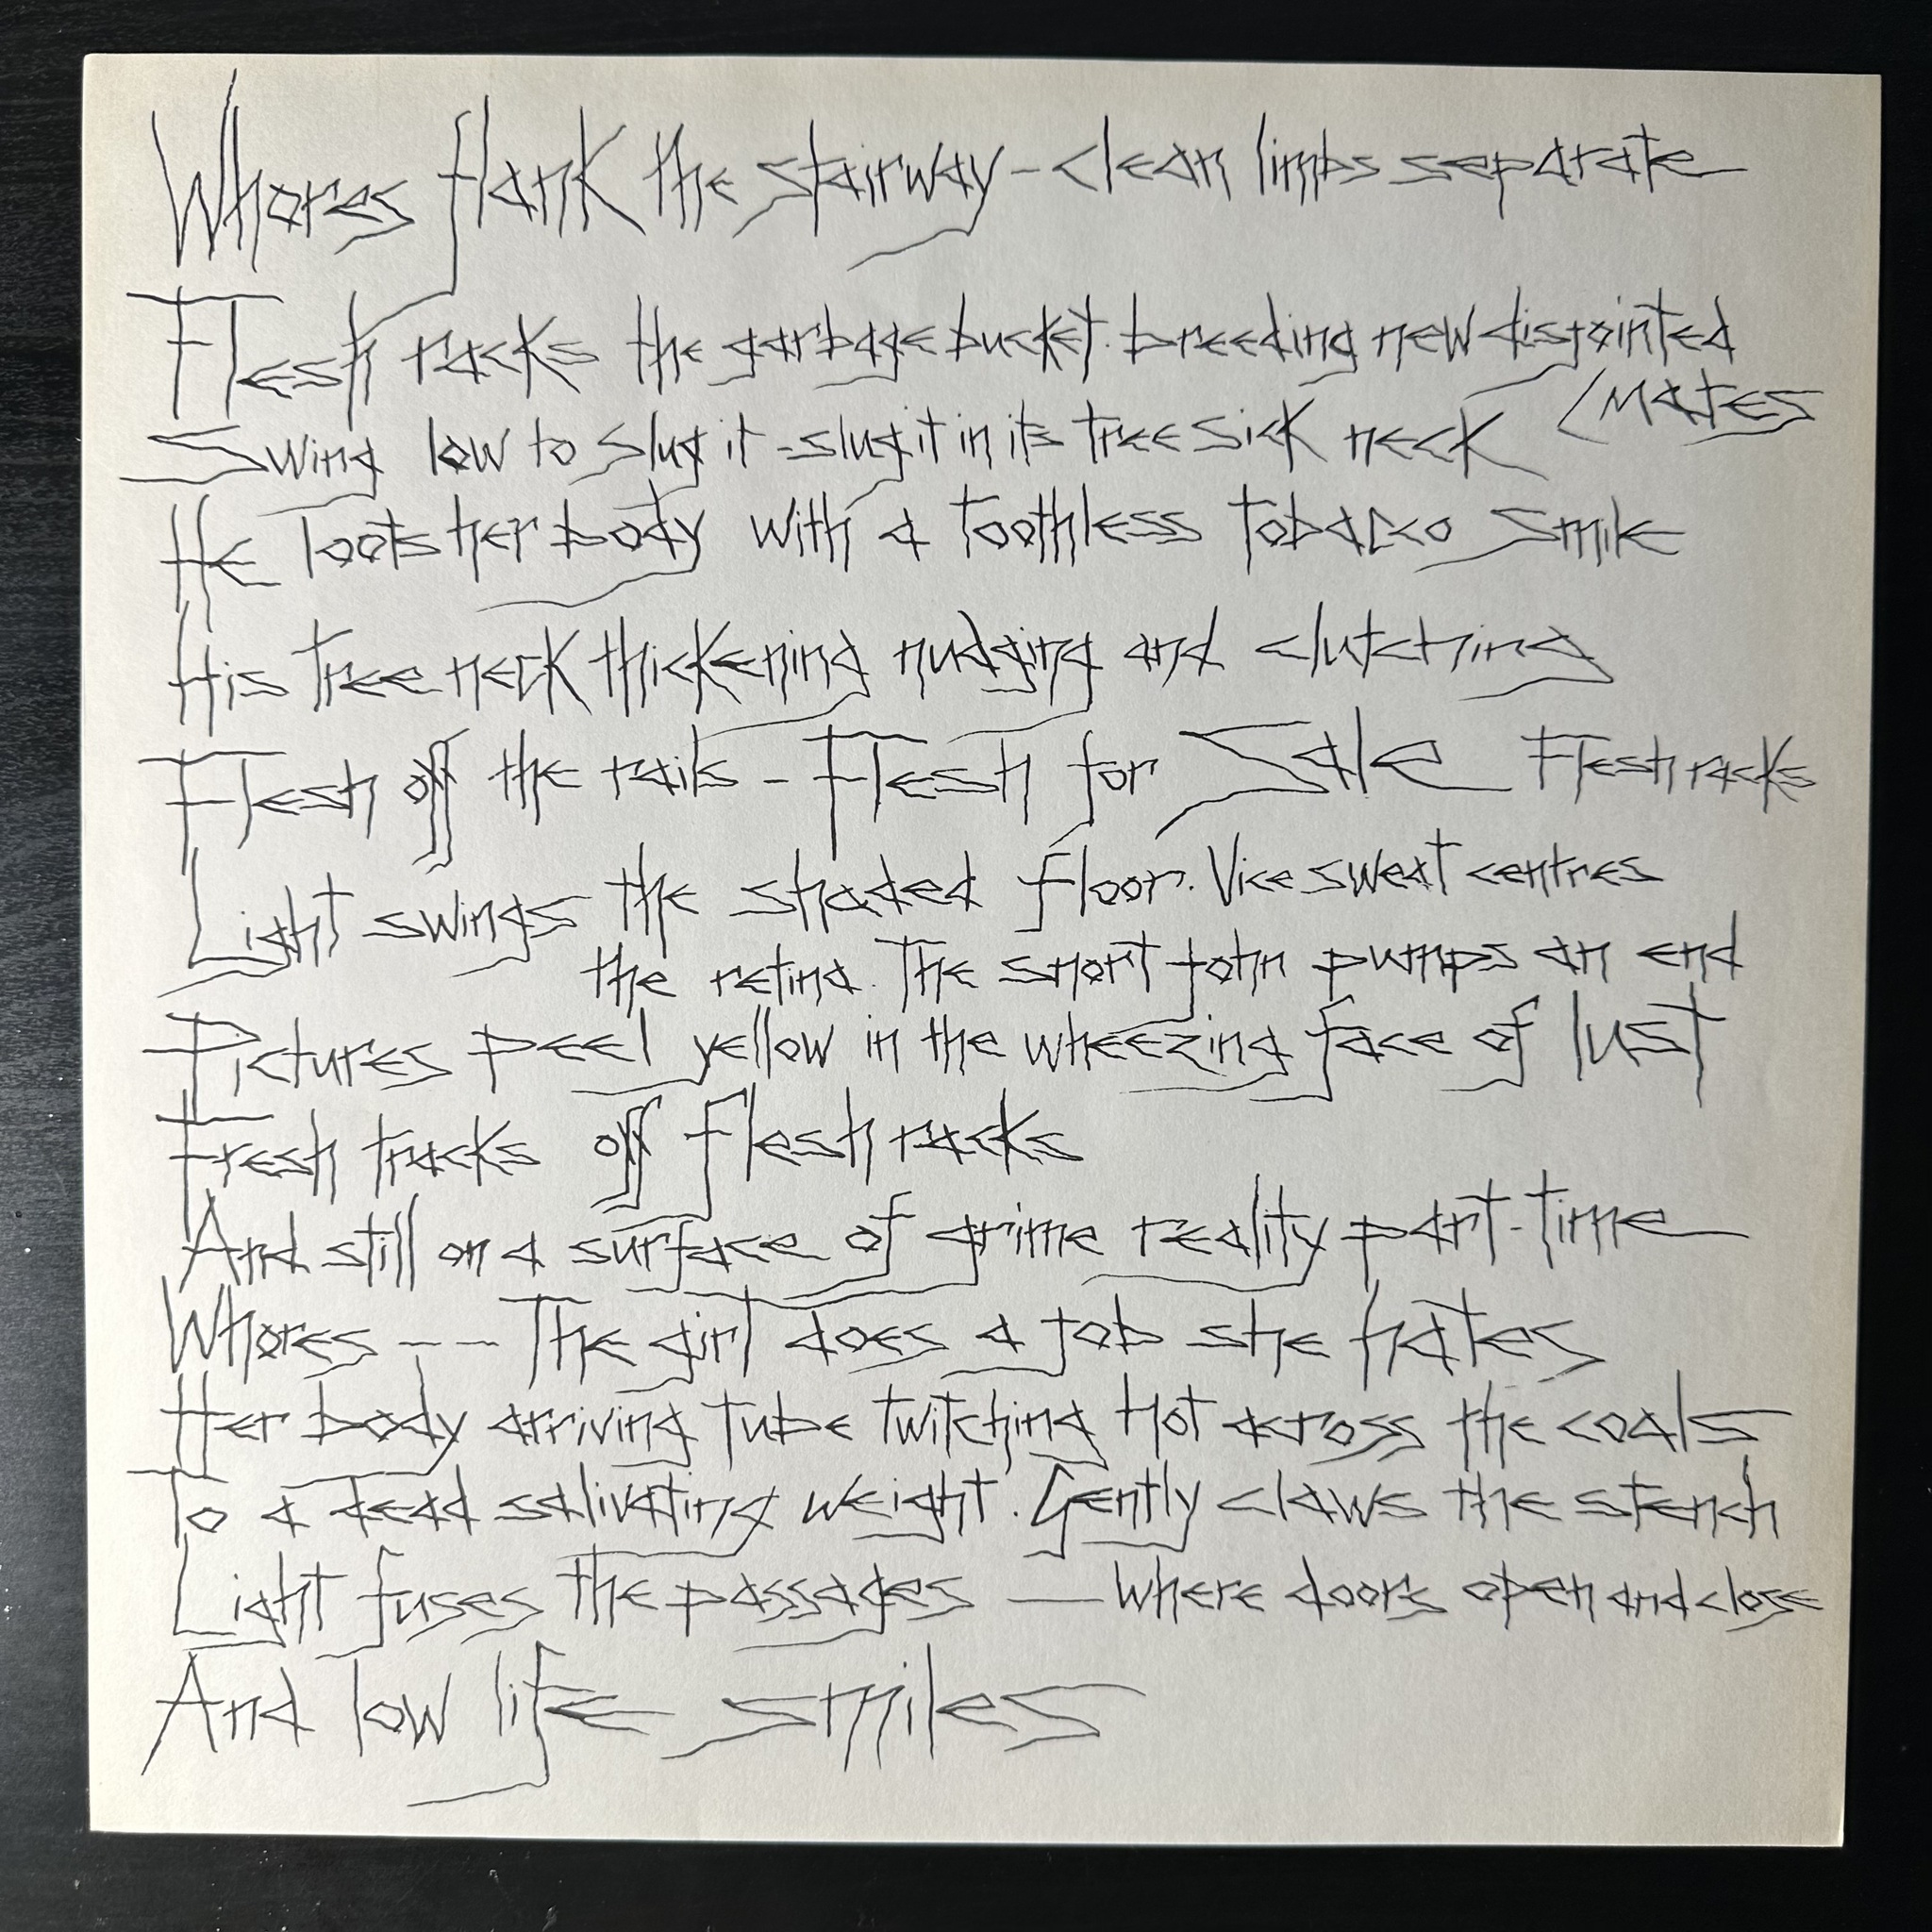 Whores flank the stairway - clean limbs separate
Flesh racks the garbage bucket. breeding new disjointed
(Mates
Swing low to slug it - slug it in its tree sick neck
He loots her body with a toothless tobacco smile
His tree neck thickening nudging and clutching
Flesh off the rails - Flesh for Sale Flesh racks
Light swings the shaded floor. Vice sweat centres
the retina. The short john pumps an end
Pictures peel yellow in the wheezing face of lust
Fresh tracks off flesh racks
And still on a surface of grime reality part-time
Whores -- The girl does a job she hates
Her body arriving tube twitching Hot across the coals
To a dead salivating weight. Gently claws the stench
Light fuses the passages — where doors open and close
And low life smiles